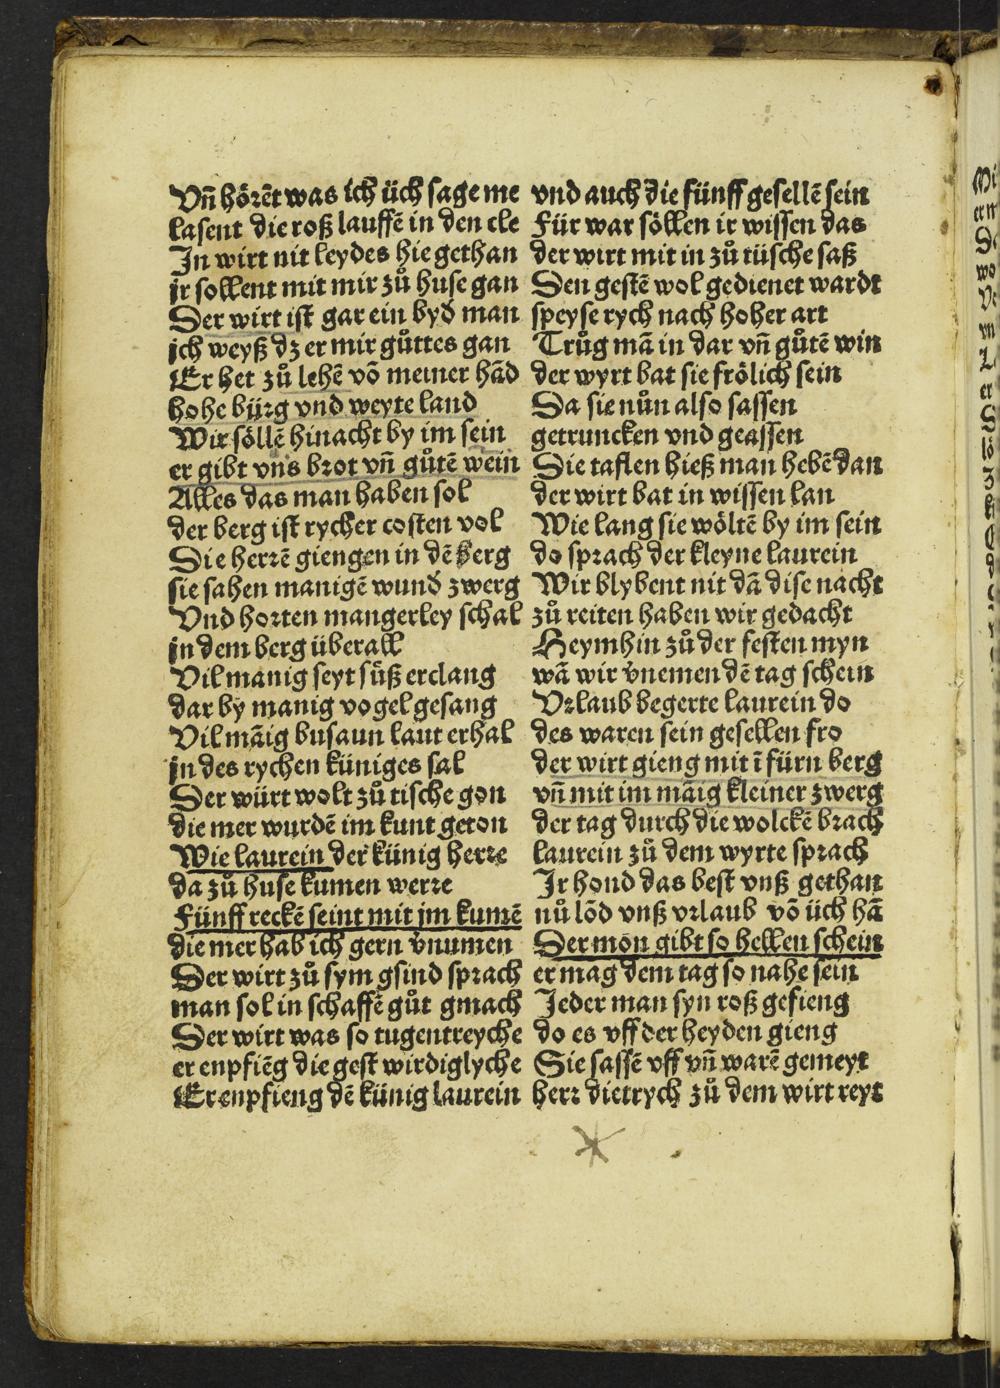 Vn̄ hörēt was ich üch sage me
lasent die roß lauffē in den cle
In wirt nit leydes hie gethan
jr sollent mit mir zů huse gan
Der wirt ist gar ein byd man
jch weyß dz er mir gůttes gan
Er het zů lehē vō meiner hād
hohe bürg vnd weyte land
Wir söllē hinacht by im sein
er gibt vns brot vn̄ gůtē wein
Alles das man haben sol
der berg ist rycher costen vol
Die herrē giengen in dē berg
sie sahen manigē wund zwerg
Vnd horten mangerley schal
in dem berg überall
Vil manig seyt sůß erclang
dar by manig vogel gesang
Vil māig busaun laut erhal
in des rychen küniges sal
Der würt wolt zů tische gon
die mer wurdē im kunt geton
Wie laurein der künig herre
da zů huse kumen werre
Fünff reckē seint mit jm kumē
die mer hab ich gern v̄numen
Der wirt zů sym gsind sprach
man sol in schaffē gůt gmach
Der wirt was so tugentreyche
er enpfiēg die gest wirdiglyche
Er enpfieng dē künig laurein
vnd auch die fünff gesellē sein
Für war söllen ir wissen das
der wirt mit in zů tüsche saß
Den gestē wol gedienet wardt
speyse rych nach hoher art
Trůg mā in dar vn̄ gůtē win
der wyrt bat sie frölich sein
Da sie nůn also sassen
getruncken vnd geassen
Die taflen hieß man hebē dan
der wirt bat in wissen lan
Wie lang sie wöltē by im sein
do sprach der kleyne laurein
Wir blybent nit dā dise nacht
zů reiten haben wir gedacht
Heymhin zů der festen myn
wā wir v̄nemen dē tag schein
Vrlaub begerte laurein do
des waren sein gesellen fro
der wirt gieng mit ī fürn berg
vn̄ mit im māig kleiner zwerg
der tag durch die wolckē brach
laurein zů dem wyrte sprach
Ir hond das best vnß gethan
nů lōd vnß vrlaub vō üch hā
Der mon gibt so hellen schein
er mag dem tag so nahe sein
Jeder man syn roß gefieng
do es vff der heyden gieng
Sie sassē vff vn̄ warē gemeyt
herr dietrych zů dem wirt reyt